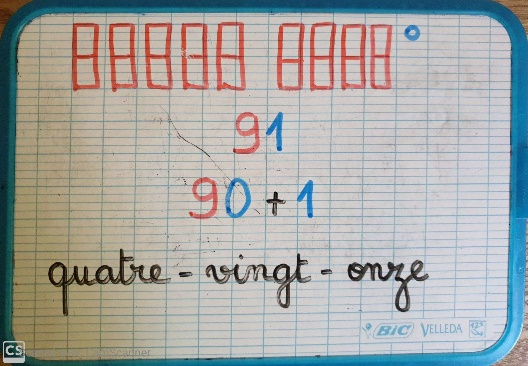 91
90 + 1
quatre - vingt - onze
BIC VELLEDA
CS